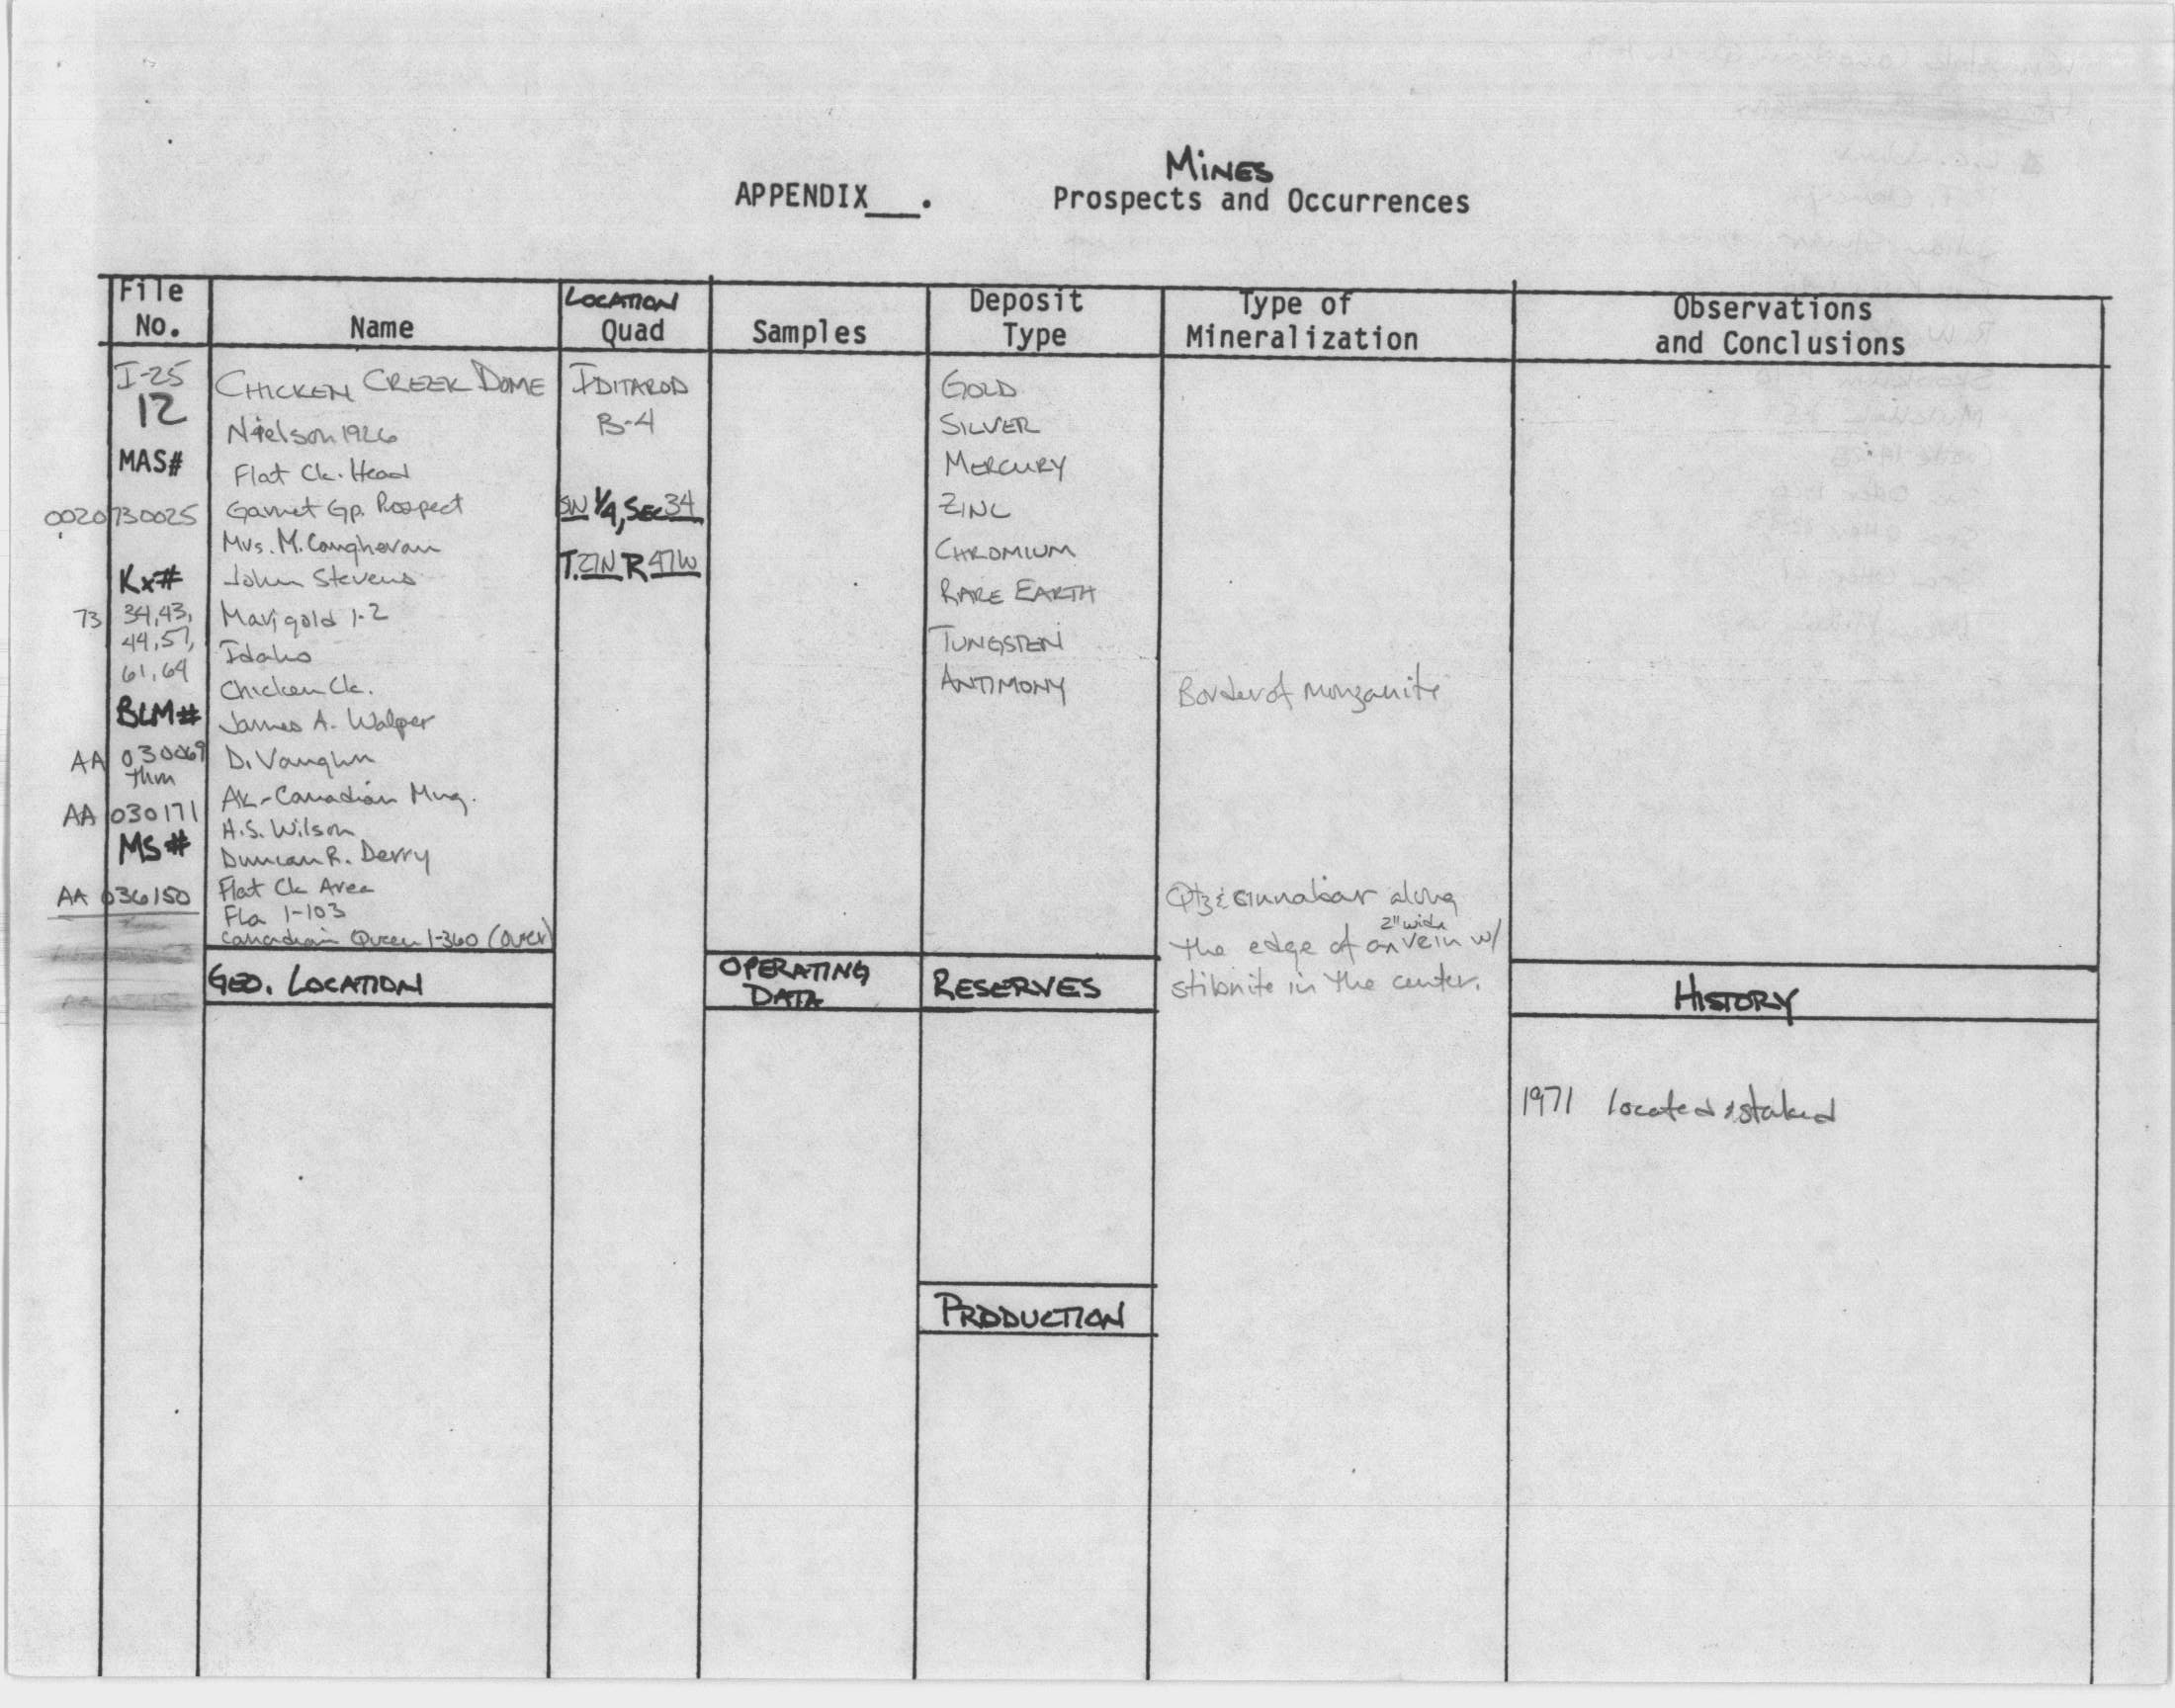 MINES
APPENDIX___. Prospects and Occurrences
File No.
Name
LOCATION
Quad
Samples
Deposit Type
Type of Mineralization
Observations and Conclusions
I-25
12
MAS#
0020730025
Kx#
73 34,43,
44,57,
61,64
BLM#
AA 030069
Thru
AA 030171
MS#
AA 036150
CHICKEN CREEK DOME
Nielson 1926
Flat Ck. Head
Garnet Gp. Prospect
Mrs. M.
John Stevens
Marigold 1-2
Idaho
Chicken Ck.
James A. Walper
D. Vaughn
AK-Canadian Mng.
H.S. Wilson
Duncan R. Derry
Flat Ck Area
Fla 1-103
Canadian Queen 1-360 (over)
GEO. LOCATION
IDITAROD
B-4
SW 1/4, SEC 34
T. 27N R 47W
OPERATING
DATA
GOLD
SILVER
MERCURY
ZINC
CHROMIUM
RARE EARTH
TUNGSTEN
ANTIMONY
RESERVES
PRODUCTION
Border of monzanite
Qtz & cinnabar along
the edge of an 2" wide vein w/
stibnite in the center.
HISTORY
1971 located & staked